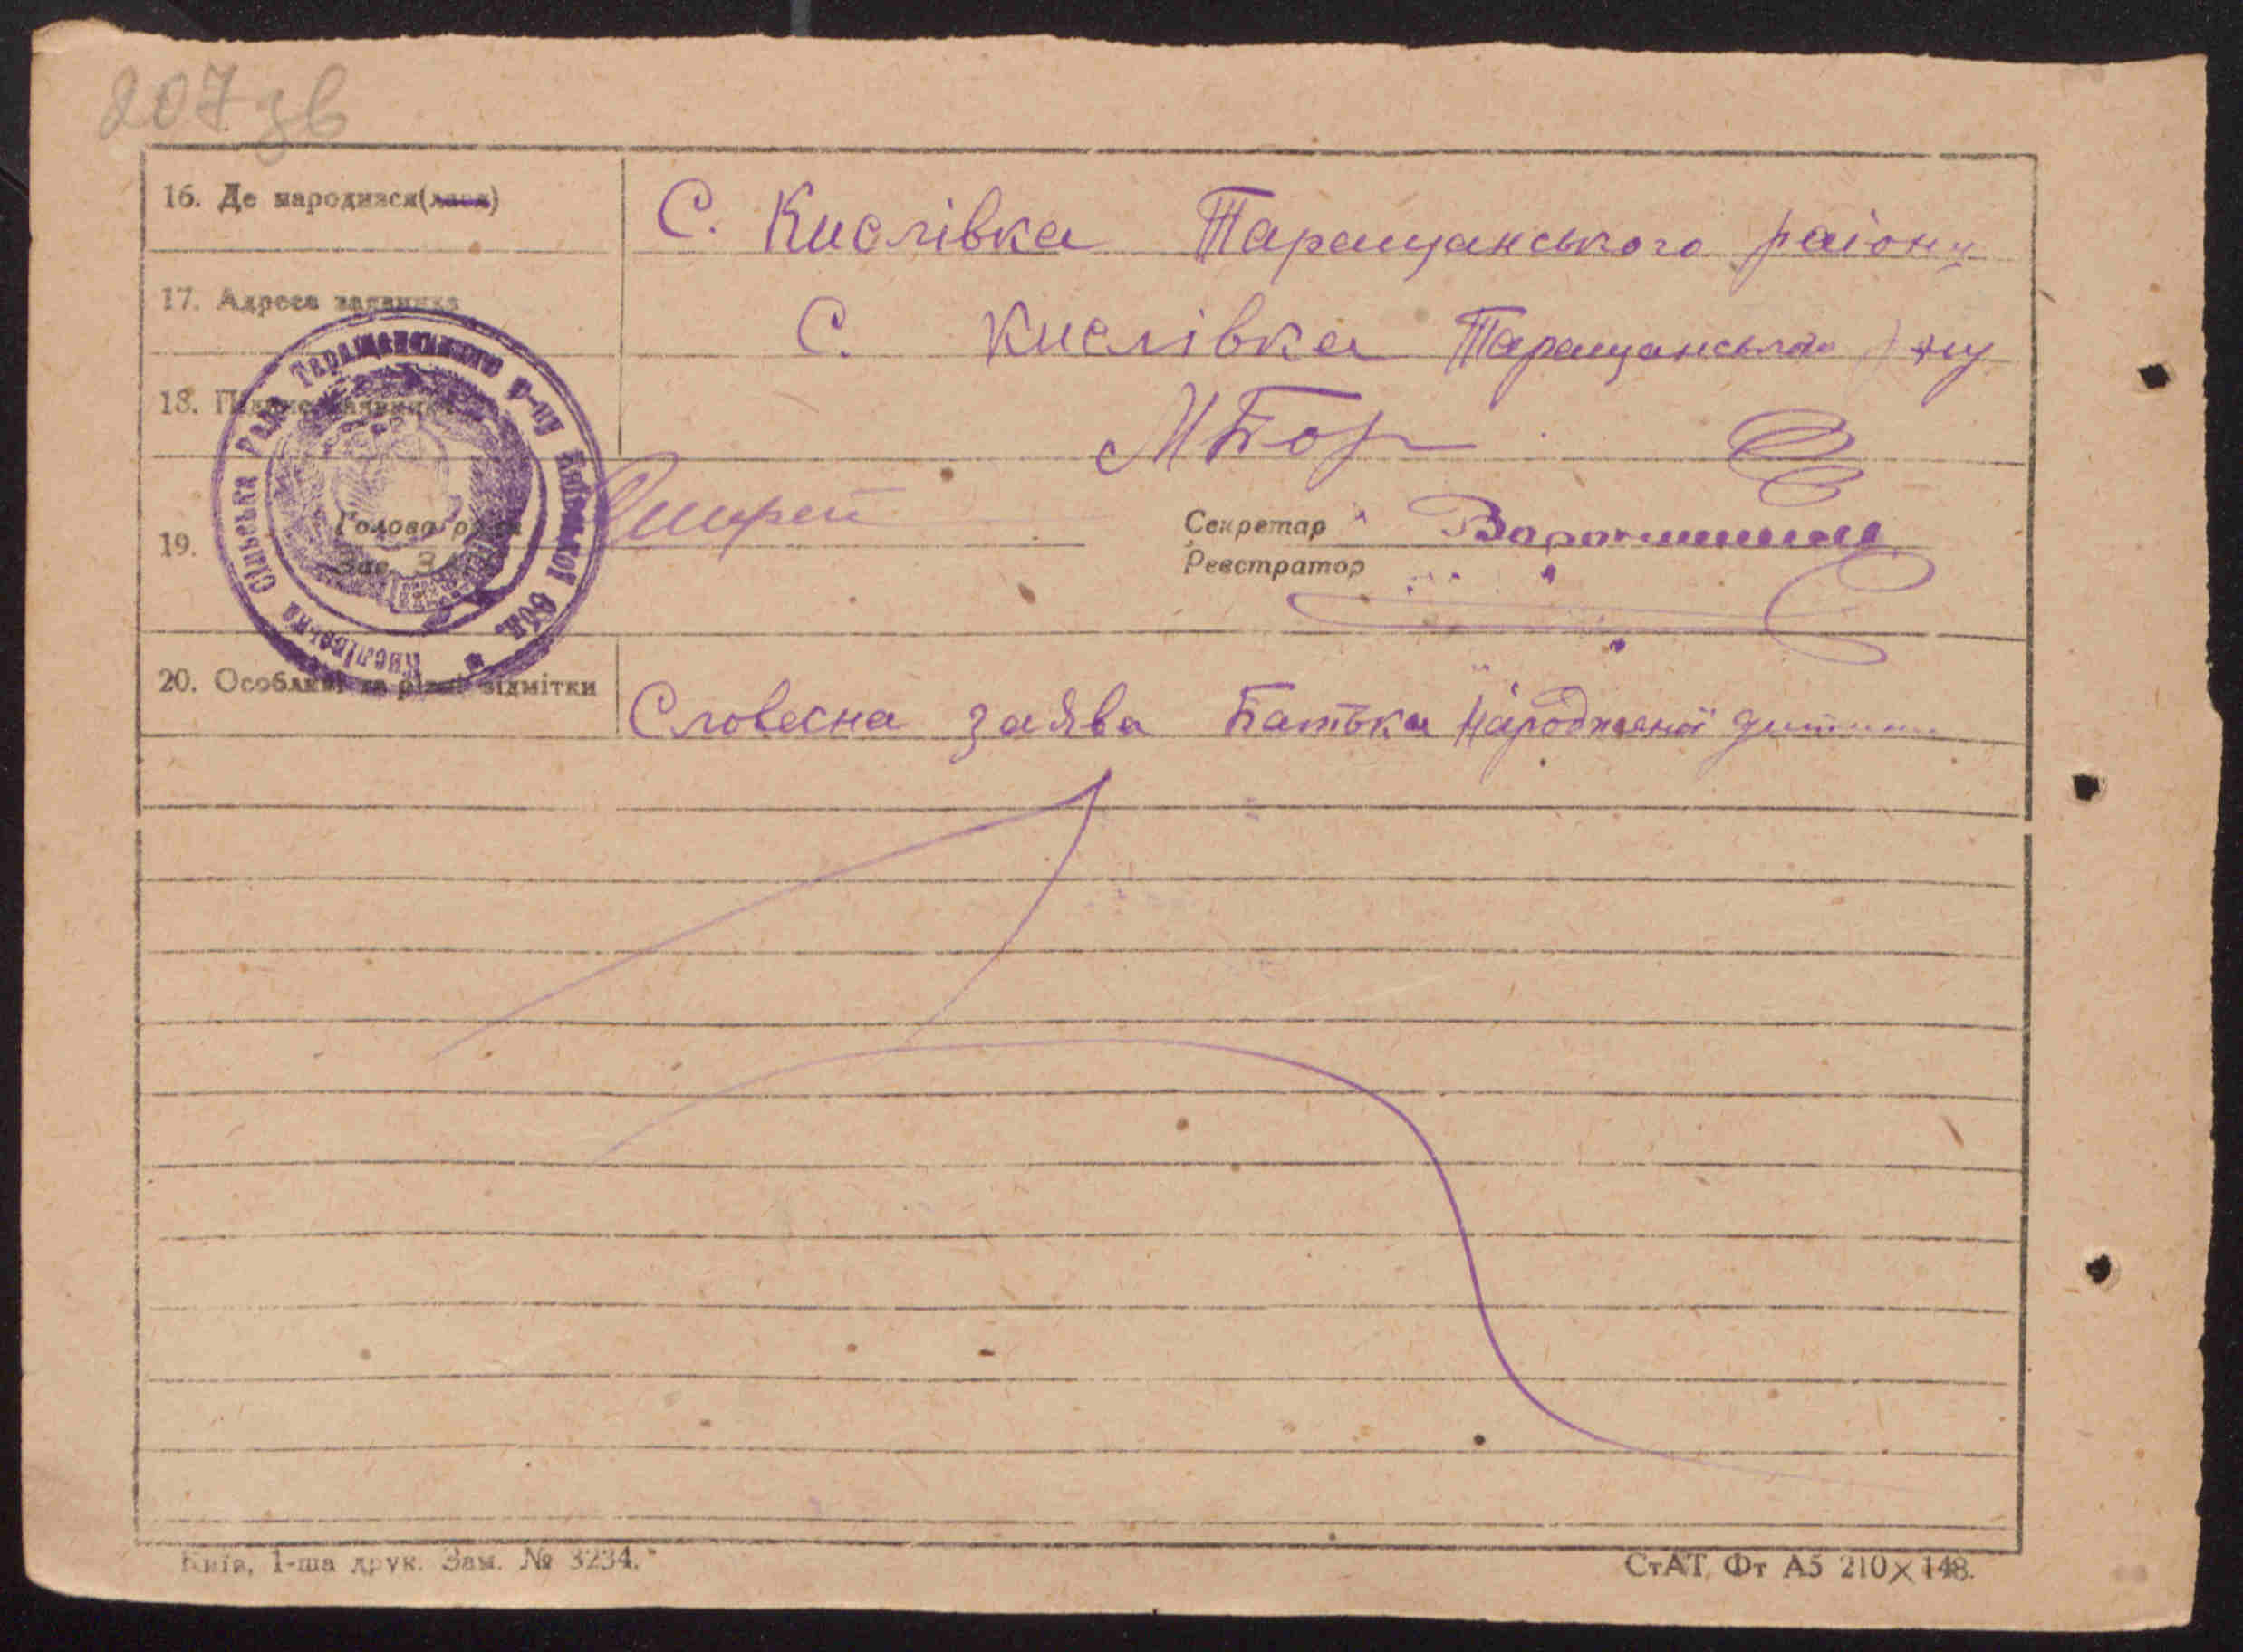 207 зв
16. Де народився(лася)
С. Кислівка Таращанського району
17. Адреса заявника
С. Кислівка Таращанського р-ну
18. Підпис заявника
МБор
Кислівська Сільська Рада Таращанського р-ну Київської обл.
19.
Голова
Зав. ЗАГС
Секретар
Реєстратор
20. Особливі та різні відмітки
Словесна заява батька народженої дитини
Київ, 1-ша друк. Зам. № 3234.
СтАТ, Фт А5 210×148.